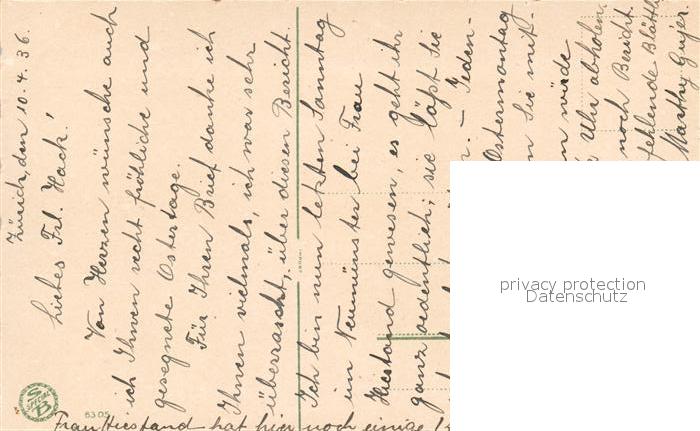 Zürich, den 10. 4. 36.
Liebes Frl. Hack!
Von Herzen wünsche auch
ich Ihnen recht fröhliche und
gesegnete Ostertage.
Für Ihren Brief danke ich
Ihnen vielmals, ich war sehr
überrascht, über diesen Bericht.
Ich bin nun letzten Sonntag
im Neumünster bei Frau
Hiestand gewesen, es geht ihr
ganz ordentlich; sie läßt Sie
Jeden-
Ostermontag
Sie mit-
würde
Uhr abholen
noch Bericht.
fehlende Blättli
Marthy Gujer.
Frau Hiestand hat hier noch einige
SB
6305
privacy protection
Datenschutz